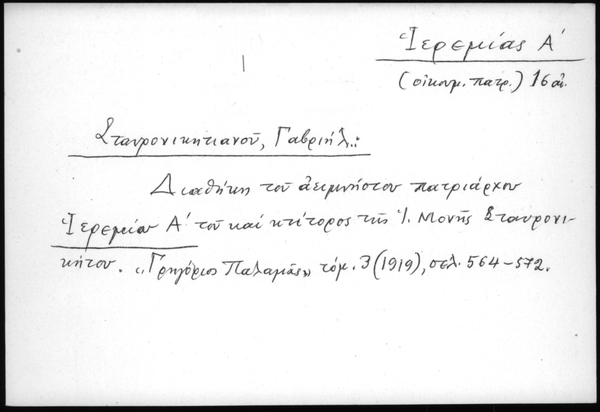 Ἱερεμίας Α'
(οἰκουμ. πατρ.) 16 αἰ.
Σταυρονικητιανοῦ, Γαβριήλ.:
Διαθήκη τοῦ ἀειμνήστου πατριάρχου
Ἱερεμίου Α' τοῦ καί κτίτορος τῆς Ἱ. Μονῆς Σταυρονι-
κήτου. «Γρηγόριος Παλαμᾶς» τόμ. 3 (1919), σελ. 564-572.